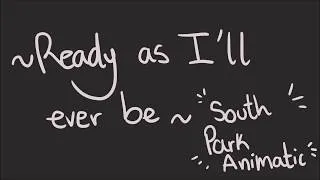 ~Ready as I'll
ever be ~
South
Park
Animatic